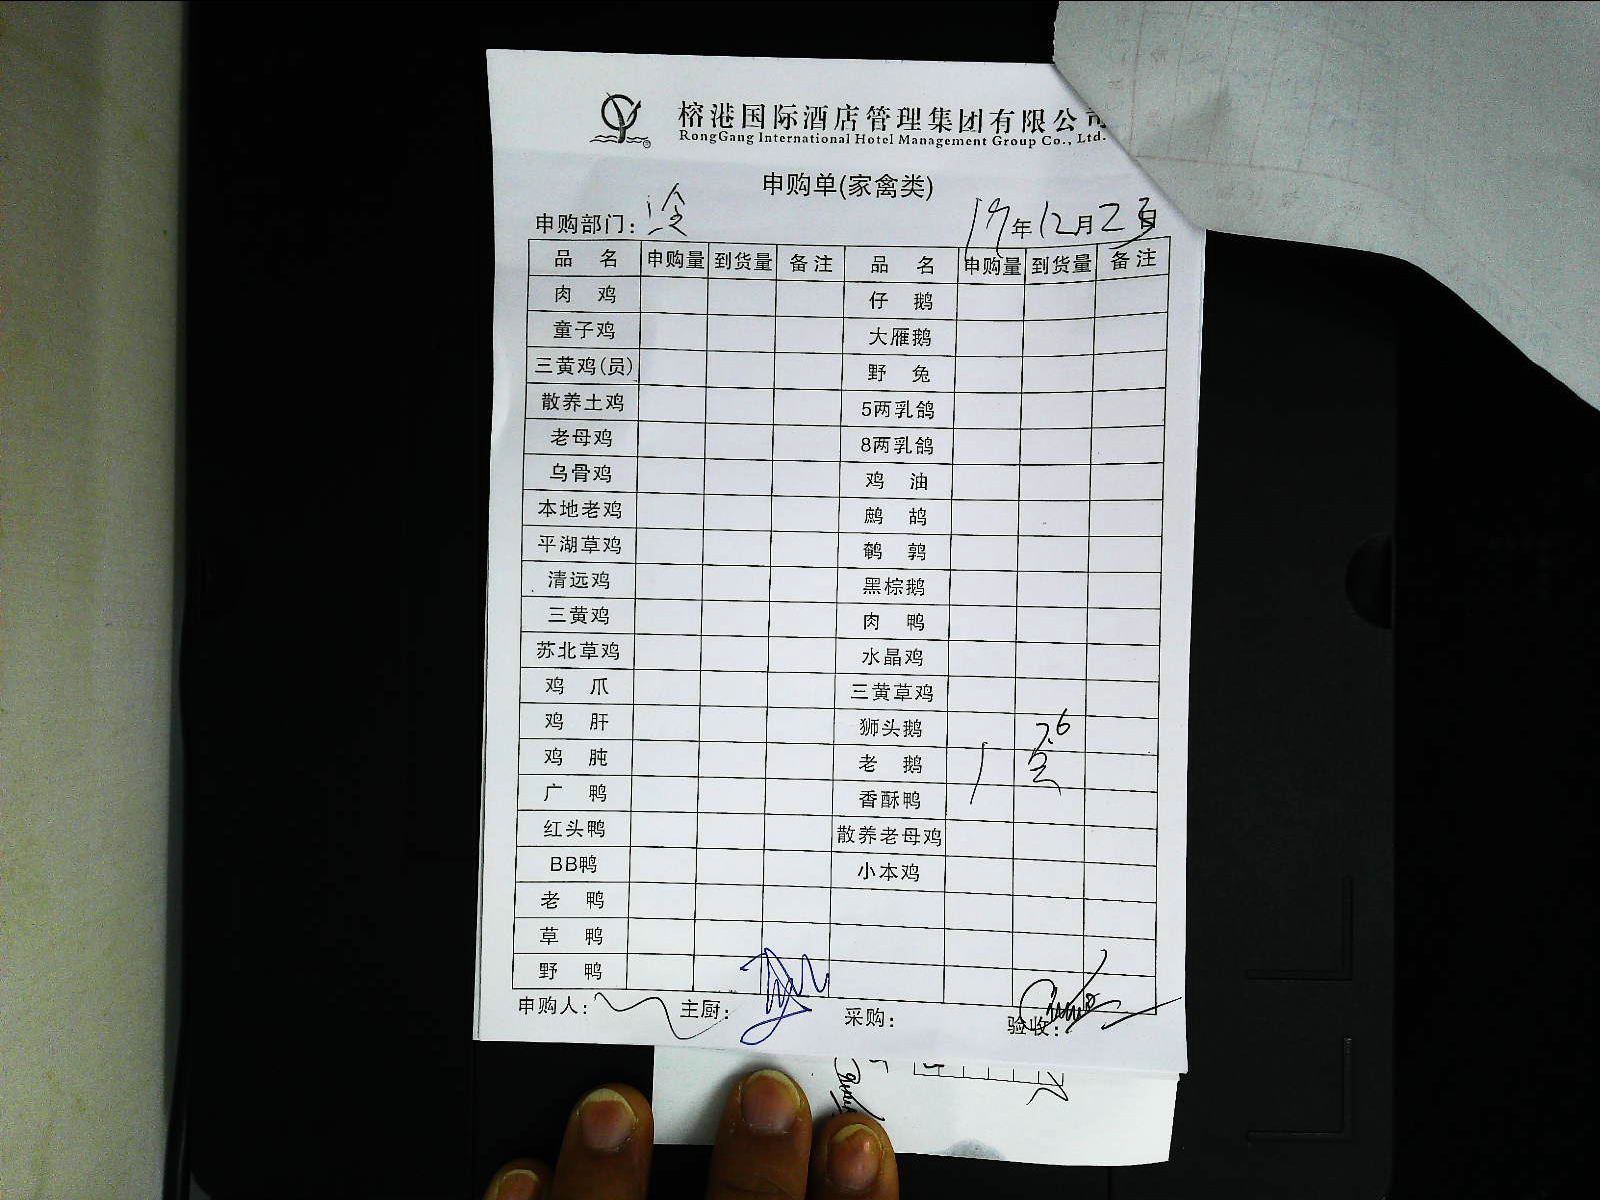 榕港国际酒店管理集团有限公司
RongGang International Hotel Management Group Co., Ltd.
申购单(家禽类)
申购部门: 冷 年12月2 日
品 名 申购量 到货量 备注 品 名 申购量 到货量 备注
肉 鸡 仔 鹅
童子鸡 大雁鹅
三黄鸡(员) 野 兔
散养土鸡 5两乳鸽
老母鸡 8两乳鸽
乌骨鸡 鸡 油
本地老鸡 鹧 鸪
平湖草鸡 鹌 鹑
清远鸡 黑棕鹅
三黄鸡 肉 鸭
苏北草鸡 水晶鸡
鸡 爪 三黄草鸡
鸡 肝 狮头鹅
鸡 肫 老 鹅 1
广 鸭 香酥鸭
红头鸭 散养老母鸡
BB鸭 小本鸡
老 鸭
草 鸭
野 鸭
申购人: 主厨: 采购: 验收: